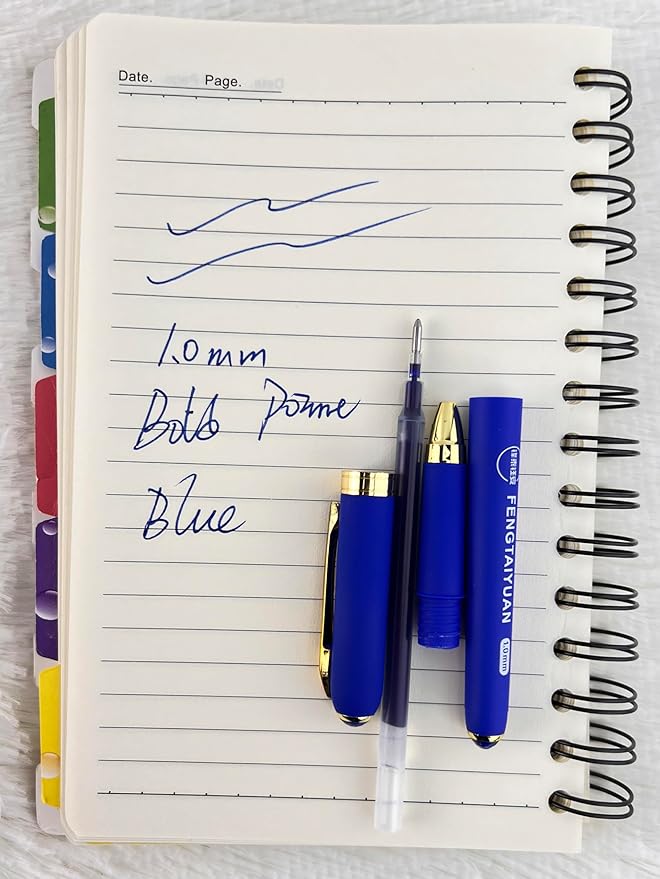 Date. Page.
1.0mm
Blue
FENGTAIYUAN
1.0mm